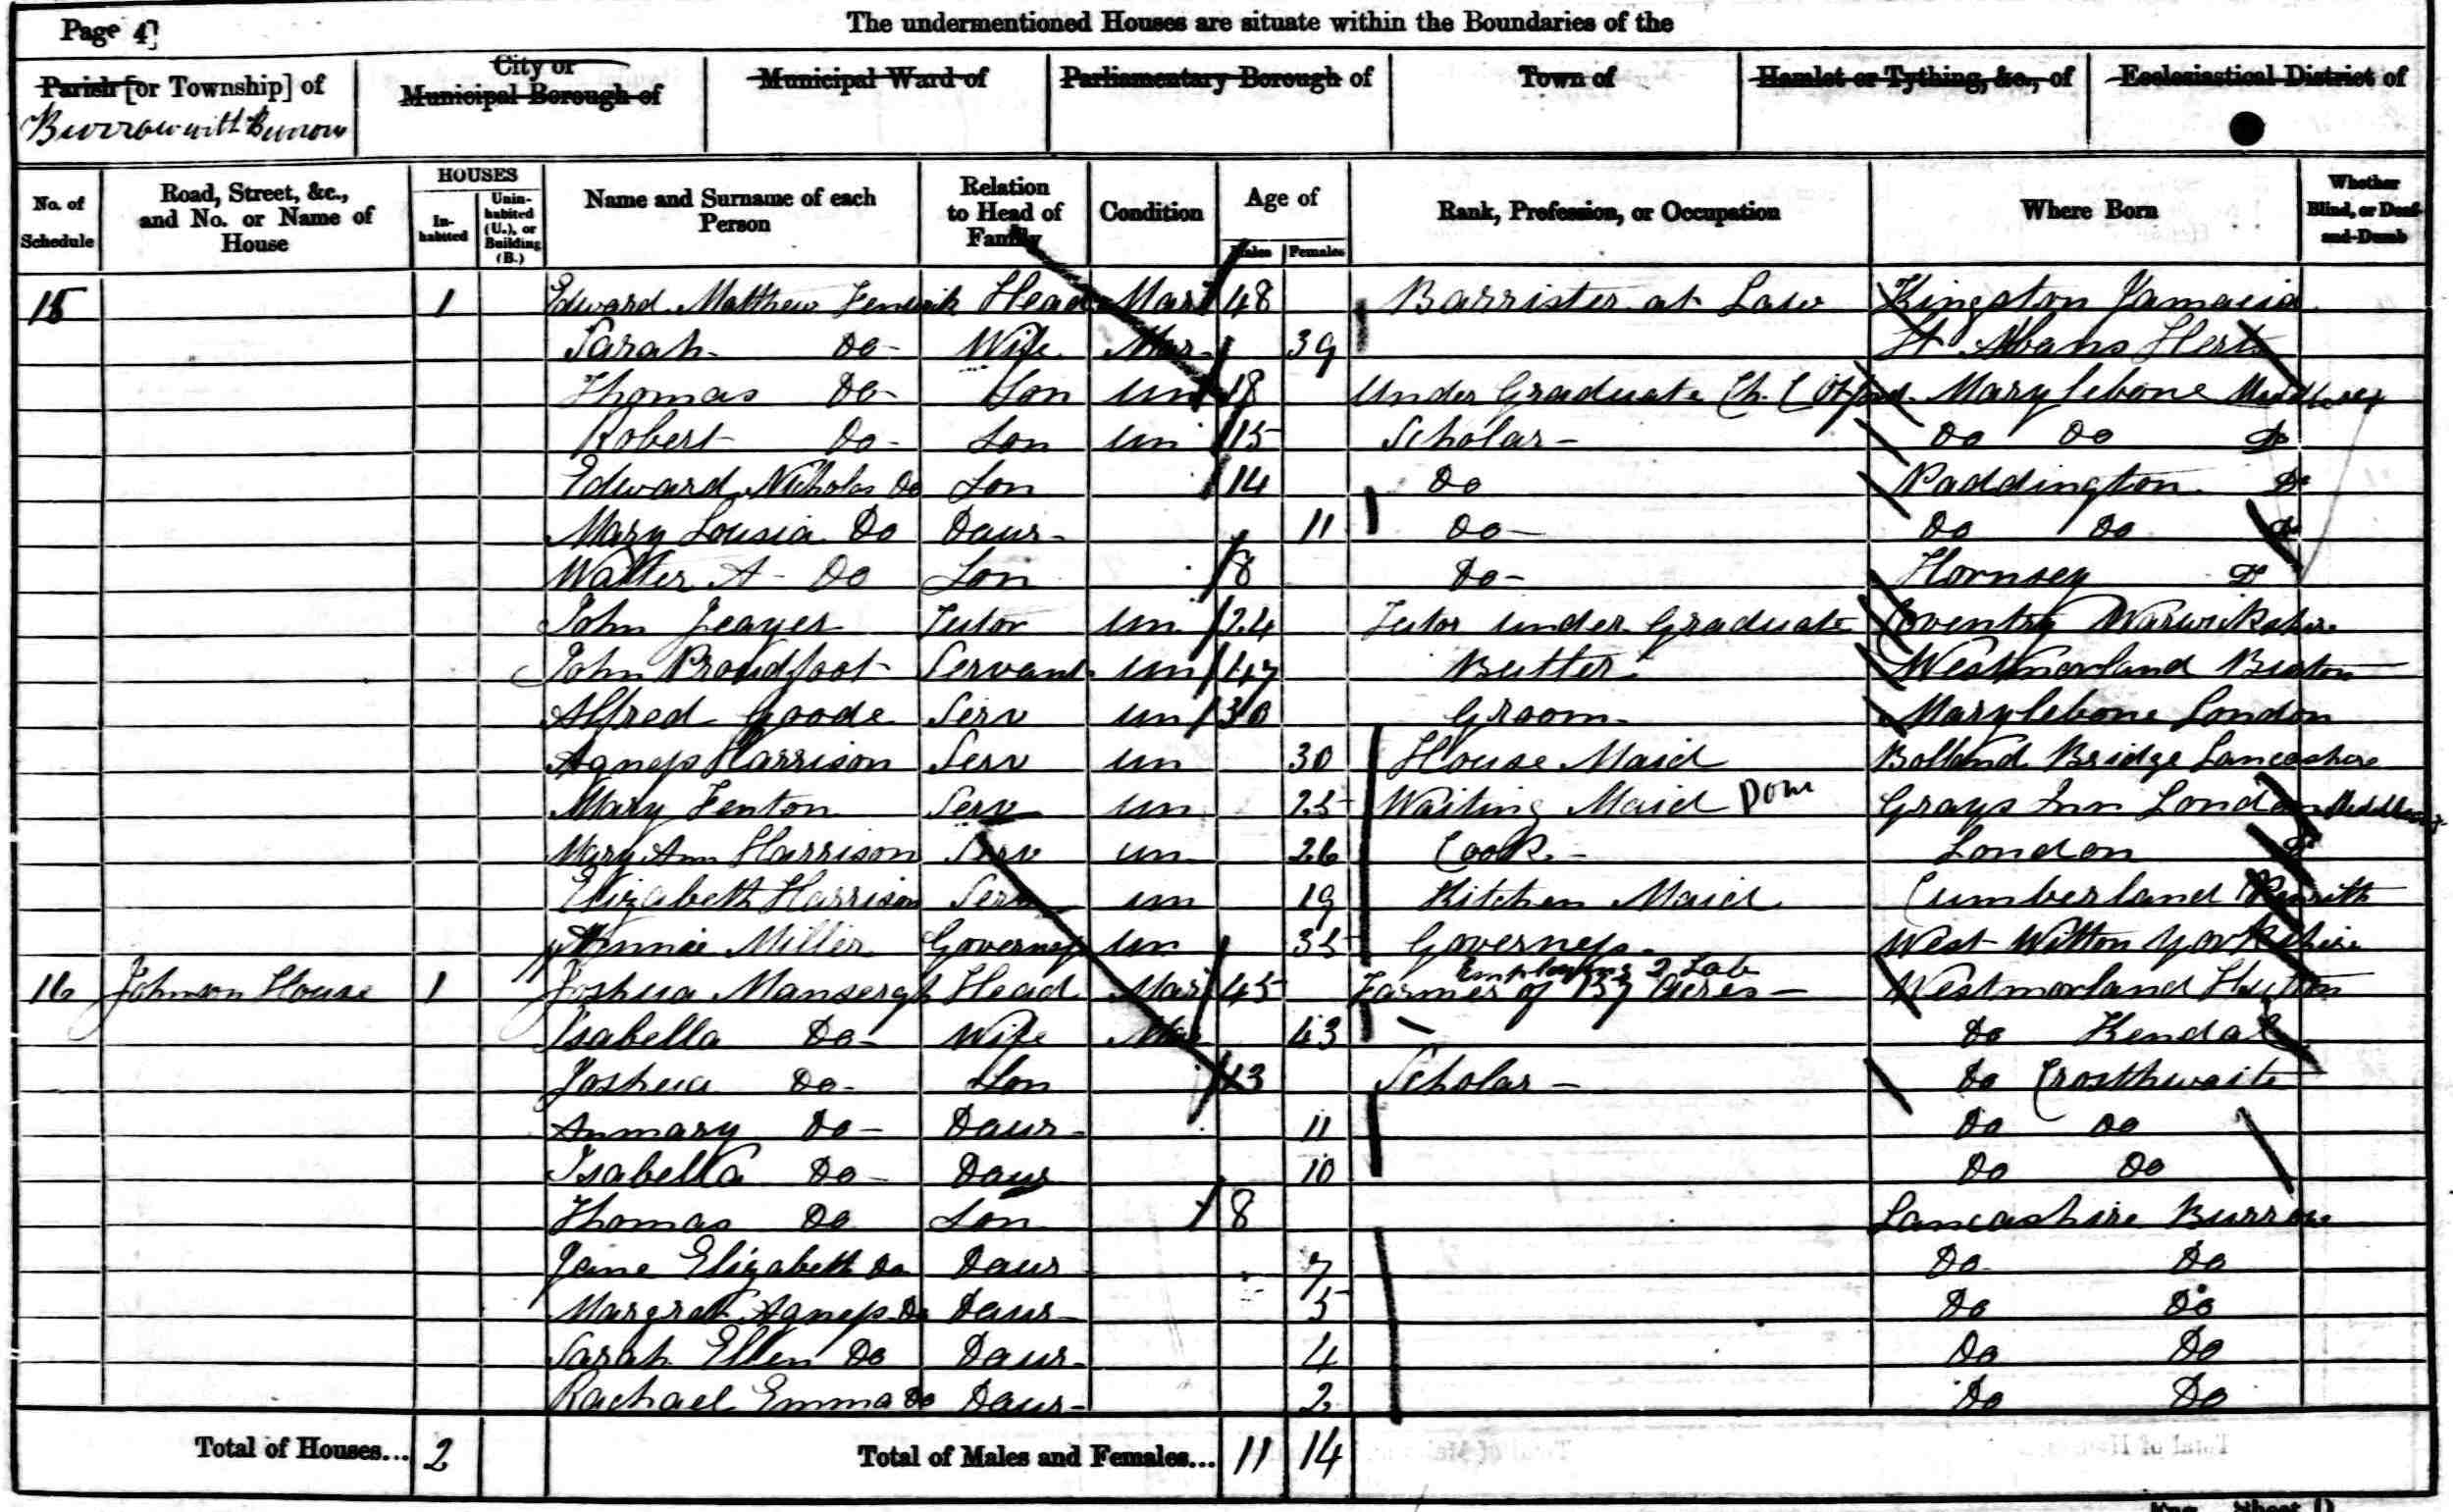 Page 4]
The undermentioned Houses are situate within the Boundaries of the
Parish [or Township] of
City or
Municipal Borough of
Municipal Ward of
Parliamentary Borough of
Town of
Hamlet or Tything, &c., of
Ecclesiastical District of
Burrow with Burrow
No. of Schedule
Road, Street, &c., and No. or Name of House
HOUSES
Inhabited
Uninhabited (U.), or Building (B.)
Name and Surname of each Person
Relation to Head of Family
Condition
Age of
Males
Females
Rank, Profession, or Occupation
Where Born
Whether Blind, or Deaf-and-Dumb
15 1 Edward Matthew Fenwick Head Mar 48 Barrister at Law Kingston Jamacia
Sarah Do- Wife Mar- 39 St Albans Herts
Thomas Do- Son Un 18 Under Graduate Ch. C Oxford. Marylebone Middlesex
Robert Do- Son Un 15 Scholar- Do Do Do
Edward Nicholas Do Son 14 Do Paddington Do
Mary Lousia Do Daur- 11 Do- Do Do Do
Walter A- Do Son 8 Do- Hornsey Do
John Jeayes Tutor Un 24 Tutor Under Graduate Coventry Warwikshire
John Proudfoot Servant Un 47 Butler Westmorland Burton
Alfred Goode Serv Un 30 Groom- Marylebone London
Agness Harrison Serv Un 30 House Maid Bolland Bridge Lancashire
Mary Fenton Serv Un 25 Waiting Maid Dom Grays Inn London Middlesex
Mary Ann Harrison Serv Un 26 Cook- London Do
Elizabeth Harrison Serv Un 19 Kitchen Maid Cumberland Penrith
Annie Miller Governess Un 35 Governess- West Witton Yorkshire
16 Johnson House 1 Joshua Mansergh Head Mar 45 Farmer of 137 Acres- Employing 2 Lab Westmorland Hutton
Isabella Do- Wife Mar 43 Do Kendal
Joshua Do- Son 13 Scholar- Do Crosthwaite
Anmary Do- Daur- 11 Do Do
Isabella Do- Daur 10 Do Do
Thomas Do Son 8 Lancashire Burrow
Jane Elizabeth Do Daur 7 Do Do
Margret Agness Do Daur- 5 Do Do
Sarah Ellen Do Daur- 4 Do Do
Rachael Emma Do Daur- 2 Do Do
Total of Houses... 2
Total of Males and Females... 11 14